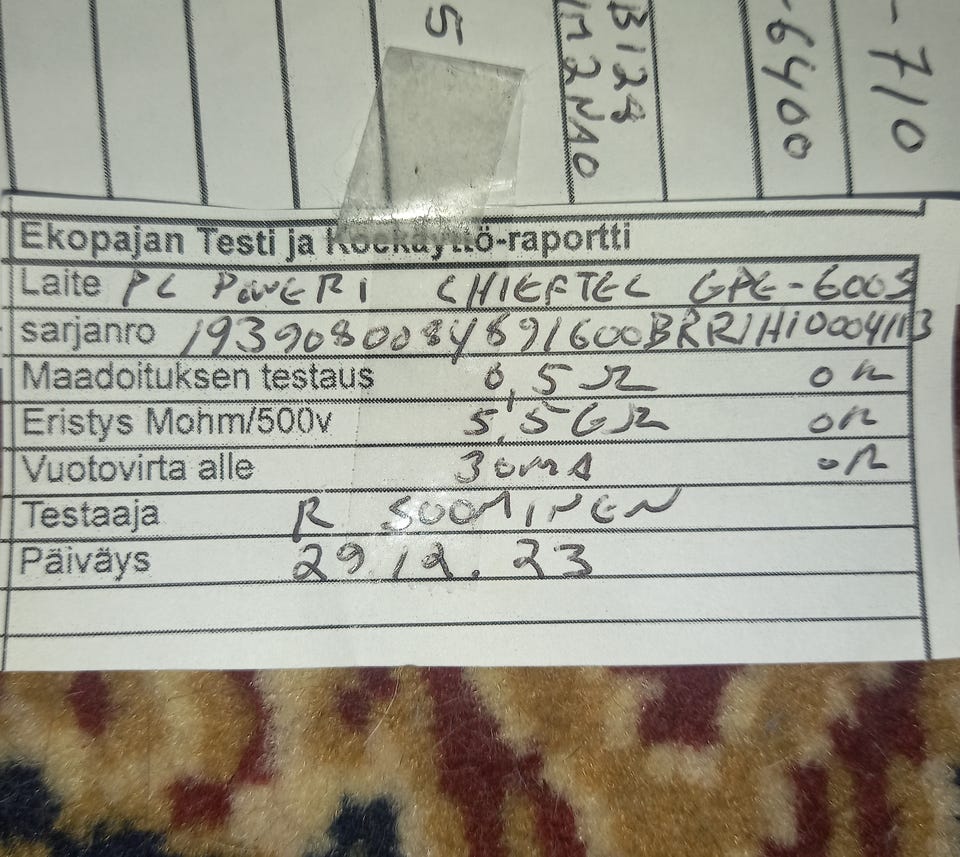 5
B128
1M2NA0
-6400
-710
Ekopajan Testi ja Koekäyttö-raportti
Laite PC POWERI CHIEFTEC GPE-600S
sarjanro
Maadoituksen testaus 0,5Ω OK
Eristys Mohm/500v 5,5GΩ OK
Vuotovirta alle 30mA OK
Testaaja R SUOMINEN
Päiväys 29.12.23